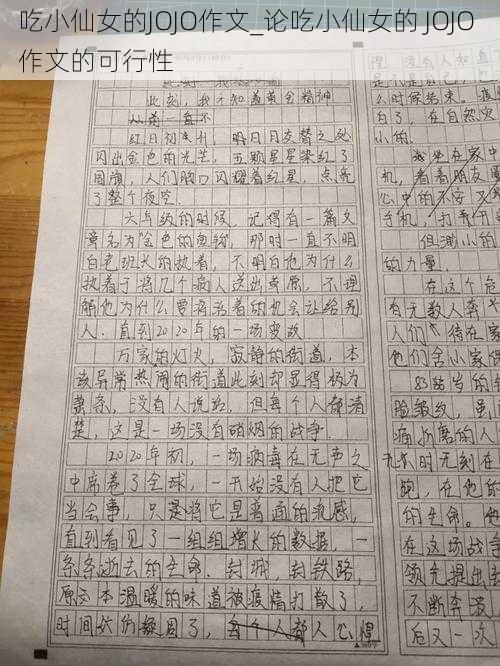 吃小仙女的JOJO作文_论吃小仙女的 JOJO
作文的可行性
此刻，我才知道黄金精神
红日初升，明日月交替之
闪出金色的光芒，五颗星星染红了
国旗，人们胸口闪耀着红星，点亮
了整个夜空.
六年级的时候，记得有一篇文
章名为金色的鱼钩，那时一直不明
白老班长的执着，不明白他为什么
执着于将几个病人送出草原，不理
解他为什么要将活着的机会让给别
人.直到2020年的一场变故
万家的灯火，寂静的街道，本
该异常热闹的街道此刻却显得极为
萧条，没有人说话，但每个人都清
楚，这是一场没有硝烟的战争.
2020年初，一场病毒在无声之
中席卷了全球，一开始没有人把它
当会事，只是将它是普通的流感，
直到看见了一组组增长的数据，一
条条逝去的生命.封城，封铁路，
原本温暖的味道被疫情打散了，
时间仿佛凝固了，每个人都人心惶
惶，没有人知道
么时候结束.
了，在自然灾
小的.
坐在家中
机，看着朋友
心中的不安
手机，打开
但渺小的
的力量.
在这个
有无数人奔
人们 待在家
他们舍小家
83的
脸皱纹，虽
病折磨的人
时无刻在
跑，在他的
的生命。他
在这场战争
领先提出
不断奔波
后又一次